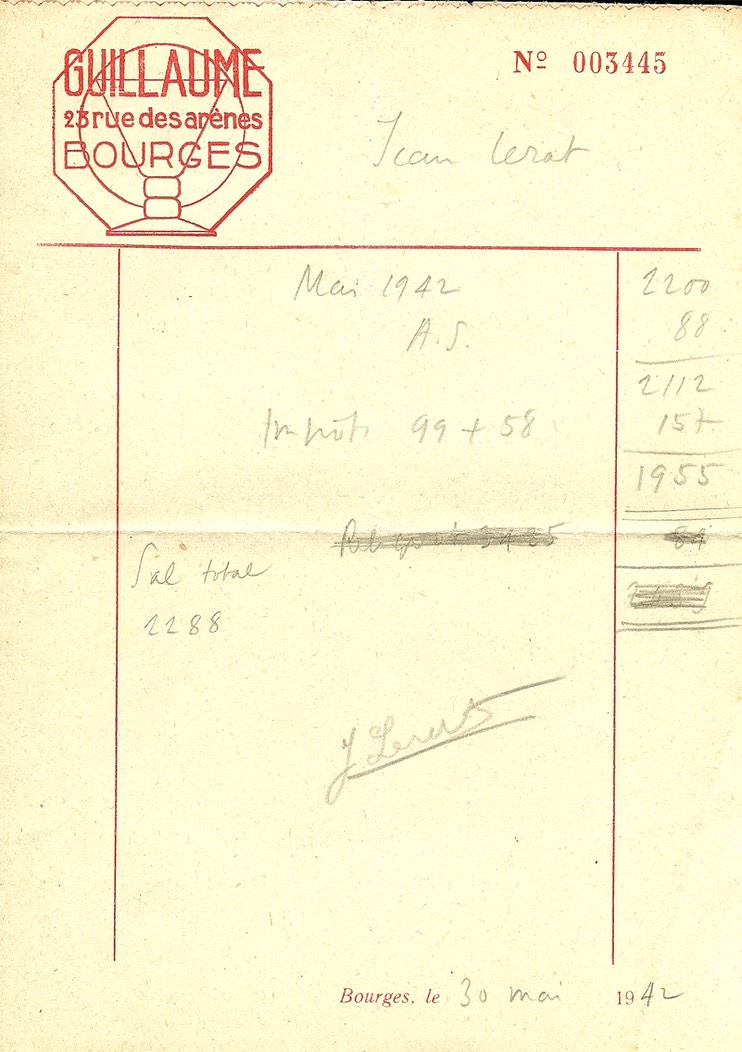 GUILLAUME
23 rue des arènes
BOURGES
Nº 003445
Jean Lerat
Mai 1942 2200
A.S. 88
2112
Impôts 99 + 58 157
1955
84
Sal total
2288
J Lerat
Bourges, le 30 mai 1942